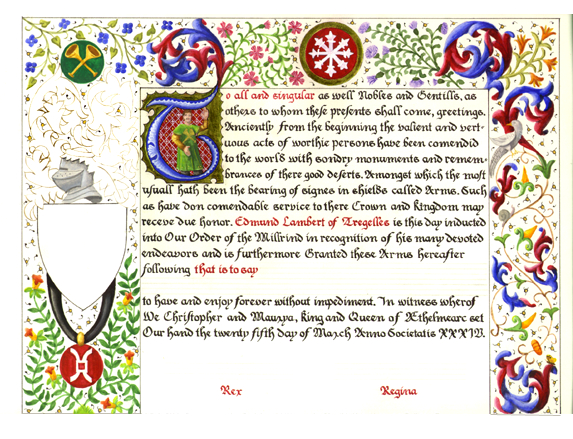 To all and singular as well Nobles and Gentills, as
others to whom these presents shall come, greetings.
Anciently from the beginning the valient and vert-
uous acts of worthie persons have been comendid
to the world with sondry monuments and remem-
brances of there good deserts. Amongst which the most
usuall hath been the bearing of signes in shields called Arms. Such
as have don comendable service to there Crown and Kingdom may
receve due honor. Edmund Lambert of Tregelles is this day inducted
into Our Order of the Millrind in recognition of his many devoted
endeavors and is furthermore Granted these Arms hereafter
following that is to say
to have and enjoy forever without impediment. In witness wherof
We Christopher and Maurya, King and Queen of Æthelmearc set
Our hand the twenty fifth day of March Anno Societatis XXXIV.
Rex Regina